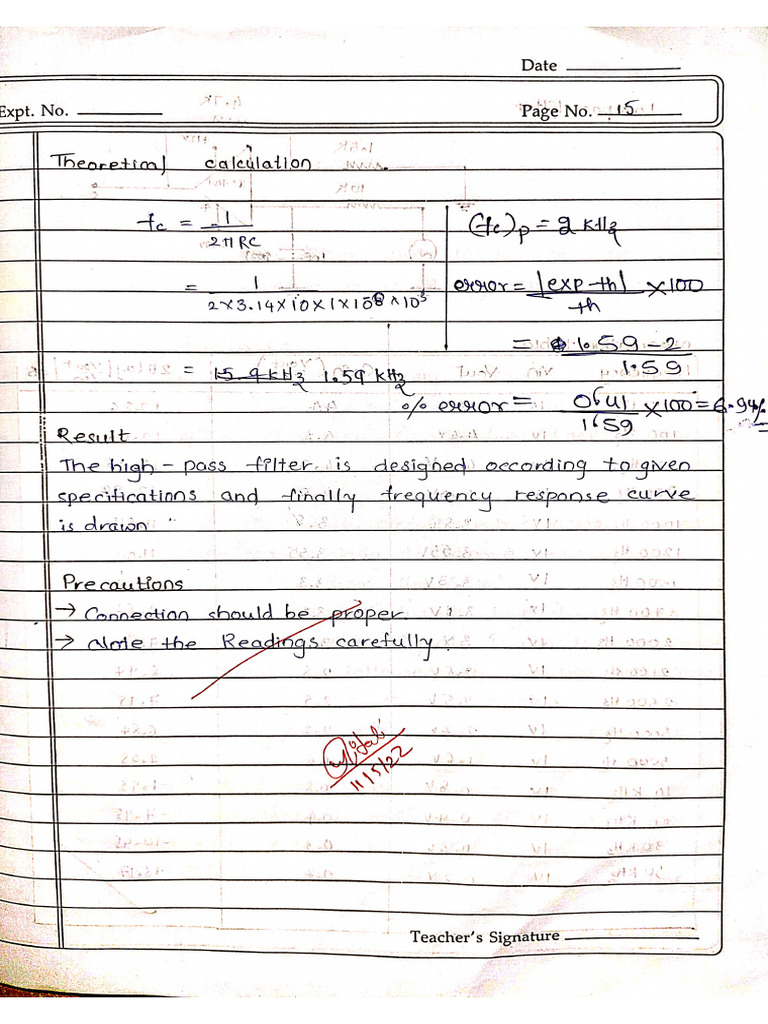 Date
Expt. No.
Page No. 15
Theoretical calculation
fc = 1 / 2πRC
= 1 / 2×3.14×10×1×10⁸×10³
= 15.9 kHz 1.59 kHz
(fc)p = 2 kHz
error = |exp-th| / th ×100
= 1.59-2 / 1.59
% error = 0.41 / 1.59 ×100 = 6.94%
Result
The high-pass filter is designed according to given
specifications and finally frequency response curve
is drawn
Precautions
→ Connection should be proper.
→ Note the Readings carefully.
11/5/22
Teacher's Signature